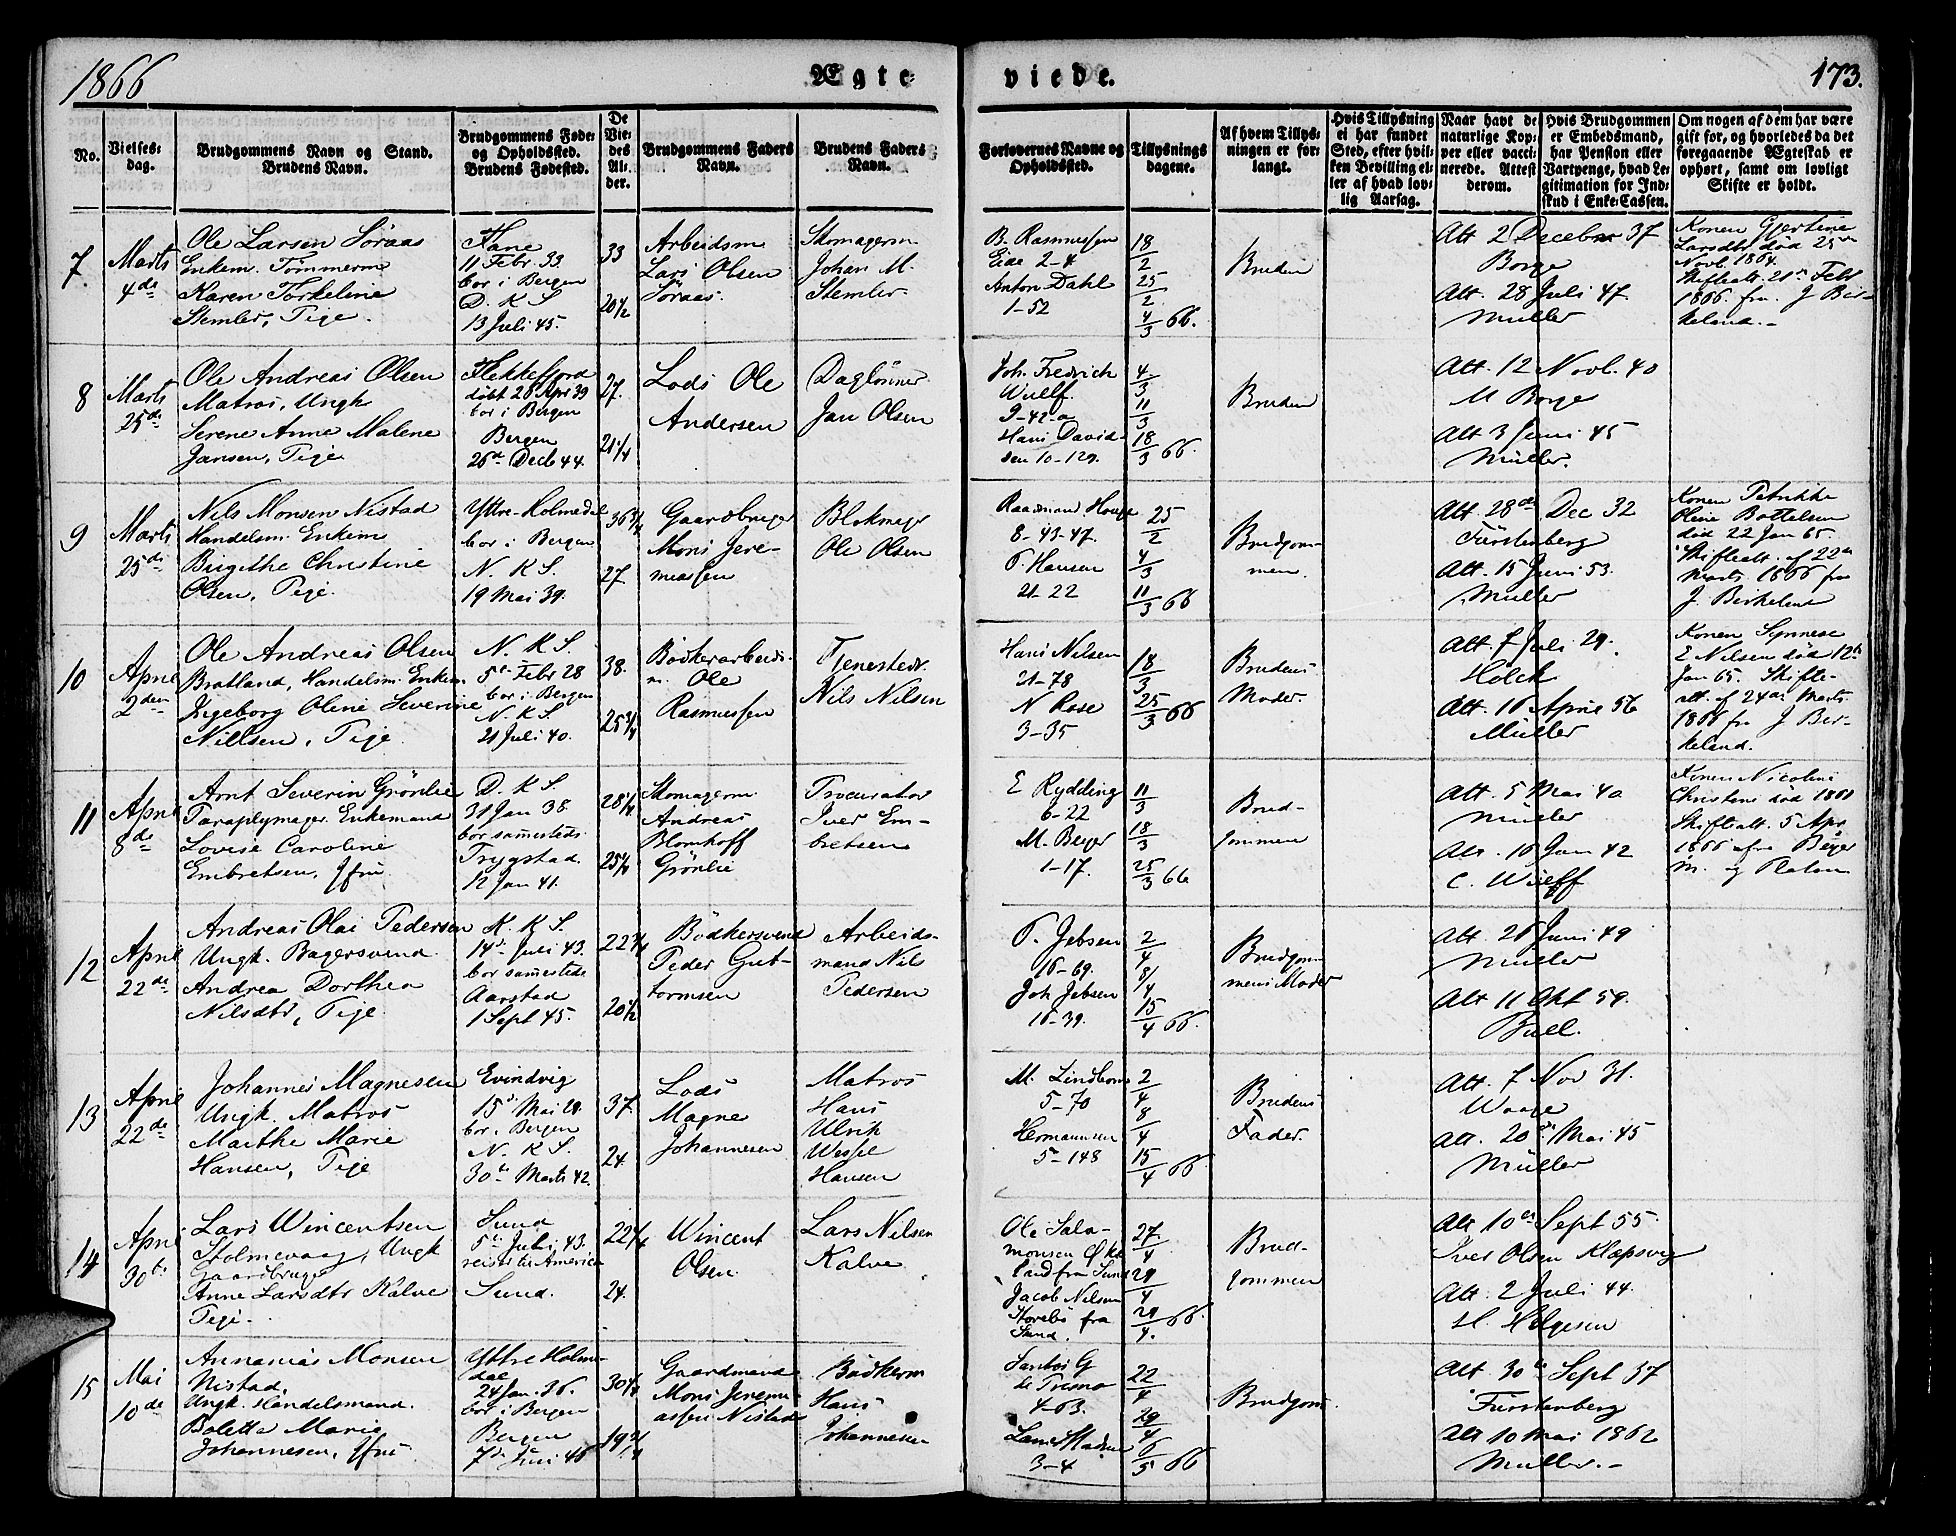 1866
Ægte-
viede.
173.
No.
Vielses-
dag.
Brudgommens Navn og Stand.
Brudens Navn.
Brudgommens Føde-
og Opholdssted.
Brudens Fødested.
De
Vie-
des
Al-
der.
Brudgommens Faders
Navn.
Brudens Faders
Navn.
Forlovernes Navne og
Opholdssted.
Tillysnings
dagene.
Af hvem Tillys-
ningen er for-
langt.
Hvis Tillysning
ei har fundet
Sted, efter hvil-
ken Bevilling el-
ler af hvad lov-
lig Aarsag.
Naar havt de
naturlige Kop-
per eller vacci-
nerede. Attest
derom.
Hvis Brudgommen
er Embedsmand,
har Pension eller
Vartpenge, hvad Le-
gitimation for Ind-
skud i Enke-Cassen.
Om nogen af dem har være
gift for, og hvorledes da det
foregaaende Ægteskab er
ophørt, samt om lovligt
Skifte er holdt.
7.
Marts
4de
Ole Larsen Søraas
Enkem. Tømmerm
Karen Torkeline
Stemler, Pige.
Fane
11 Febr. 33.
bor i Bergen
D. K S.
13 Juli 45.
33
20 1/2
Arbeidsm
Lars Olsen
Søraas.
Skomagerm
Johan M.
Stemler.
B. Rasmussen
Eide 2-4
Anton Dahl
1-52
18/2
25/2
4/3 66.
Bruden
Att 2 Decebr 37
Borge
Att. 28 Juli 47.
Müller
Konen Gjertine
Larsdtr død 25de
Novb. 1864.
Skifteatt. 21de Feb
1866 fra J Bir-
keland.-
8
Marts
25de
Ole Andreas Olsen
Matros, Ungk
Serene Anne Malene
Jansen, Pige
Flekkefjord
døbt 28 Apr 39
bor i Bergen
Bergen
26de Decb 44.
27.
21 1/4
Lods Ole
Andersen
Daglønner
Jan Olsen
Joh. Fredrich
Wulf.
9-42-a
Hans David-
sen 10-129.
4/3
11/3
18/3 66.
Bruden
Att. 12 Novb. 40
M Borge
Att 3 Juni 45
Müller.
9
Marts
25de
Nils Monsen Nistad
Handelsm. Enkem
Birgithe Christine
Olsen, Pige.
Yttre-Holmedal
bor i Bergen
N. K S.
19 Mai 39.
36 3/4
27.
Gaardbruger
Mons Jere-
miassen
Blokmager
Ole Olsen
Raadmand Houge
8-43-47.
P. Hansen
21-22
25/2
4/3
11/3 66
Brudgom-
men.
Att. 28de Dec 32
Fürstenberg
Att. 15 Juni 53.
Müller
Konen Petrikke
Oline Bottelsen
død 22 Jan 65.
Skifteatt. af 22de
Marts 1866 fra
J. Birkeland
10
April
2den
Ole Andreas Olsen
Bratland, Handelsm. Enkem
Ingeborg Oline Severine
Nillsen, Pige.
N. K S.
5te Febr 28
bor i Bergen
N. K S.
21 Juli 40.
38.
25 3/4
Bødkerarbeids-
m. Ole
Rasmussen
Tjenestedr.
Nils Nilsen
Hans Nilsen
21-78
N Rose
3-35
18/3
25/3 66
Brudens
Moder.
Att. 7 Juli 29.
Holck
Att. 16 April 56
Müller
Konen Synneve
E Nilsen død 12te
Jan 65. Skifte-
att. af 24de Marts
1866 fra J. Bir-
keland.
11
April
8de
Arnt Severin Grönlie
Paraplymager. Enkemand
Lovise Caroline
Embretsen, Jfru.
D. K S.
31 Jan 38.
bor sammesteds
Trygstad
12 Jan 41.
28 1/4
25 1/4
Skomagerm.
Andreas
Blomhoff
Grönlie
Procurator
Iver Em-
bretsen
E Rydding
6-22
M. Beyer
1-17.
11/3
18/3
25/3 66
Brud-
gommen
Att. 5 Mai 40
Müller
Att. 16 Jan 42
C. Wulff
Konen Nicoline
Christens død 1861
Skifteatt. 5 Apr
1866 fra Beyer
12
April
22de
Andreas Olai Pedersen
Ungk. Bagersvend
Andrea Dorthea
Nilsdtr, Pige.
K. K S.
14de Juli 43.
bor sammesteds
Aarstad
1 Sept 45.
22 3/4
20 1/2
Bødkersvend
Peder Gut-
tormsen
Arbeids-
mand Nils
Pedersen
P. Jebsen
16-69.
Joh Jebsen
16-39.
2/4
8/4
15/4 66.
Brudgom-
mens Moder
Att. 26 Juni 49
Müller
Att 11 Okt 59.
Bull.
13
April
22de
Johannes Magnesen
Ungk. Matros
Marthe Marie
Hansen, Pige
Evindvig
15de Mai 29.
bor i Bergen
N. K S.
30te Marts 42.
37.
24.
Lods
Magne
Johannesen
Matros
Hans
Ulrik
Wessel
Hansen
M. Lindbom
5-70
Hermannsen
5-148
2/4
8/4
15/4 66
Brudens
Fader.
Att. 7 Nov 31.
Waage
Att. 20de Mai 45
Müller
14
April
30te
Lars Wincentsen
Stolmevaag, Ungk
Gaardbruger
Anne Larsdtr Kalve
Pige.
Sund
5te Juli 43.
reiser til America
Sund.
22 3/4
24.
Wincent
Olsen.
Lars Nilsen
Kalve
Ole Salo-
monsen Øke
land fra Sund
Jacob Nilsen
Korebø fra
Sund.
27/4
29/4
29/4. 66
Brud-
gommen
Att 10de Sept 55.
Iver Olsen Klepsvig
Att. 2 Juli 44.
H. Helgesen
15
Mai
10de
Annanias Monsen
Nistad.
Ungk. Handelsmand.
Bolette Marie
Johannesen, Jfru
Yttre Holme-
dal
24 Jan. 36.
bor i Bergen
Bergen
7de Juni 46
30 1/4
Gaardmand
Mons Jeremi-
assen Nistad
Bødkerm
Hans
Johannesen
4-63.
3-4
22/4
29/4
6/5 66
Brudgom.
Att 30te Sept 37
Fürstenberg
Att 10 Mai 1862
Müller.-